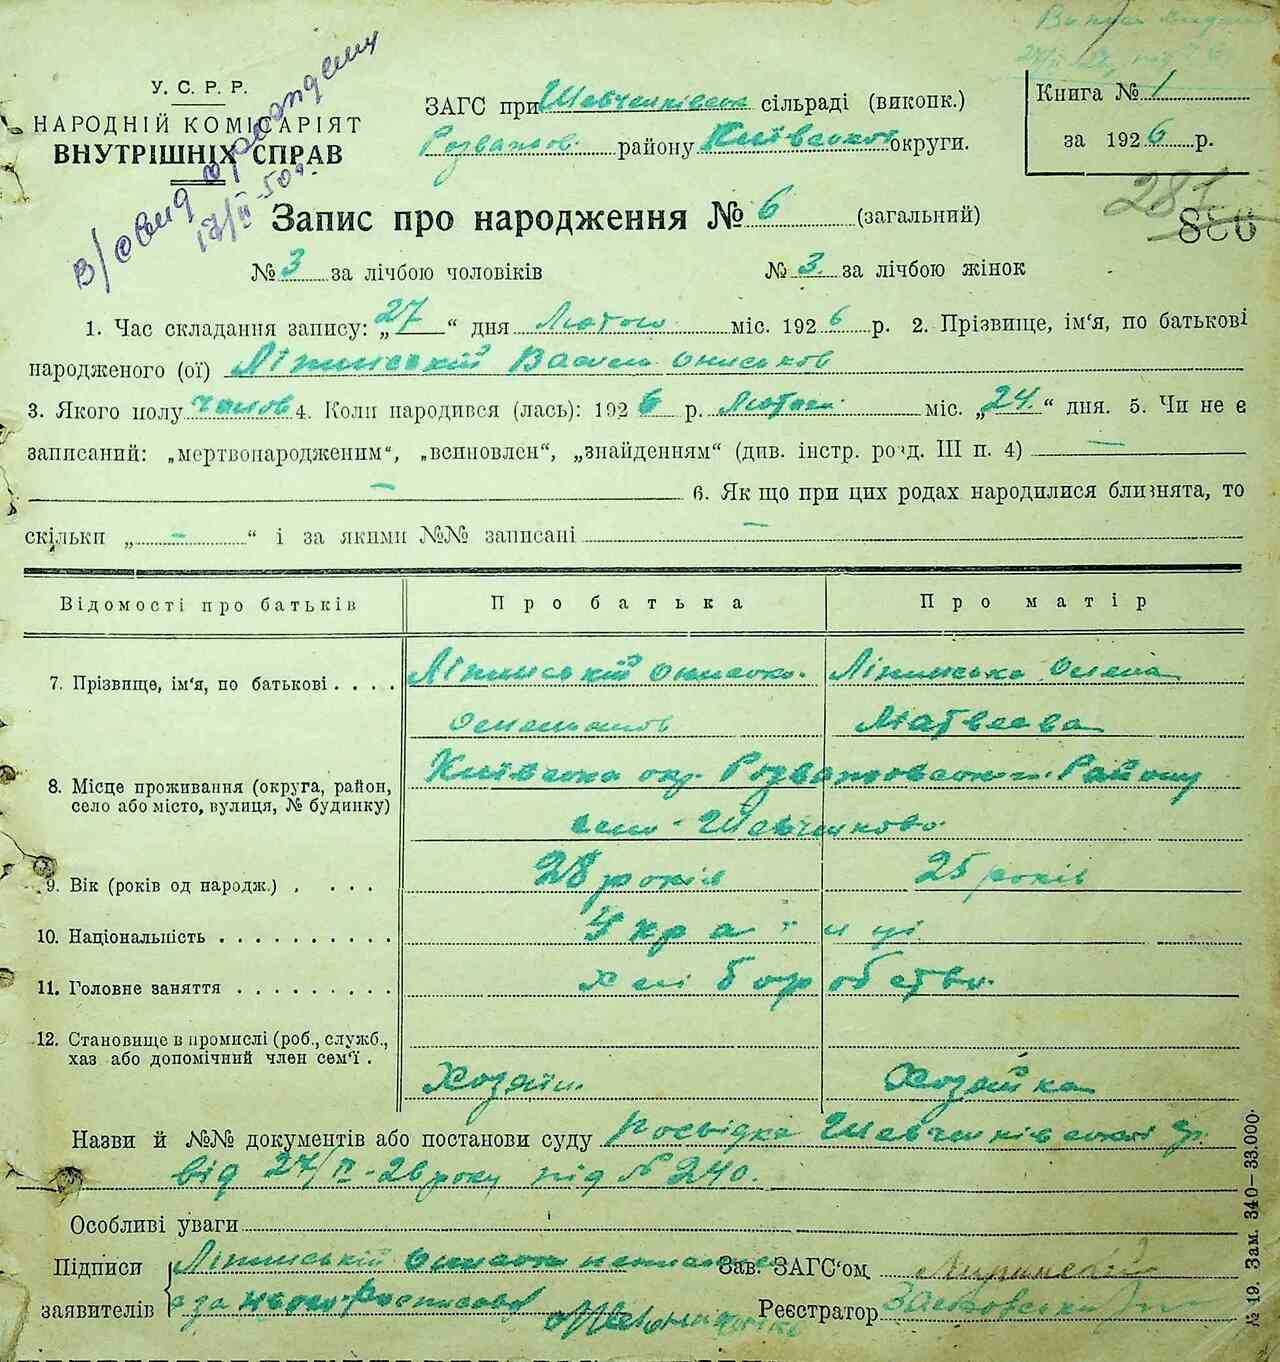 У. С. Р. Р.
НАРОДНІЙ КОМІСАРІЯТ
ВНУТРІШНІХ СПРАВ
ЗАГС при Шевченківськ сільраді (виконк.)
Розважов. району Київської округи.
Книга № 1
за 1926 р.
287
836
Запис про народження № 6 (загальний)
№ 3 за лічбою чоловіків № 3. за лічбою жінок
1. Час складання запису: „27“ дня Лютого міс. 1926 р. 2. Прізвище, ім'я, по батькові
народженого (ої) Ліпинській Васил Ониськов
3. Якого полу чолов 4. Коли народився (лась): 1926 р. Лютого міс. „24.“ дня. 5. Чи не є
записаний: „мертвонародженим“, „всиновлен“, „знайденням“ (див. інстр. розд. III п. 4) —
— 6. Як що при цих родах народилися близнята, то
скільки „ - “ і за якими №№ записані —
Відомості про батьків Про батька Про матір
7. Прізвище, ім'я, по батькові . . . . Ліпинській Онисько. Ліпинська Олена
Омельянов Матвеева
8. Місце проживання (округа, район, село або місто, вулиця, № будинку) Київська окр. Розважовського Району
село Шевченково
9. Вік (років од народж.) . . . . 28 років 25 років
10. Національність . . . . . . . . . . Українці
11. Головне заняття . . . . . . . . . Хліборобство.
12. Становище в промислі (роб., служб.,
хаз або допомічний член сем'ї . Хозяїн Хозяйка
Назви й №№ документів або постанови суду Посвідка Шевченківської
від 27/II-26 року під № 240.
Особливі уваги
Підписи Ліпинській Онисько Зав. ЗАГС'ом
заявителів а за нього росписався Реєстратор
№ 19. Зам. 340—33.000.